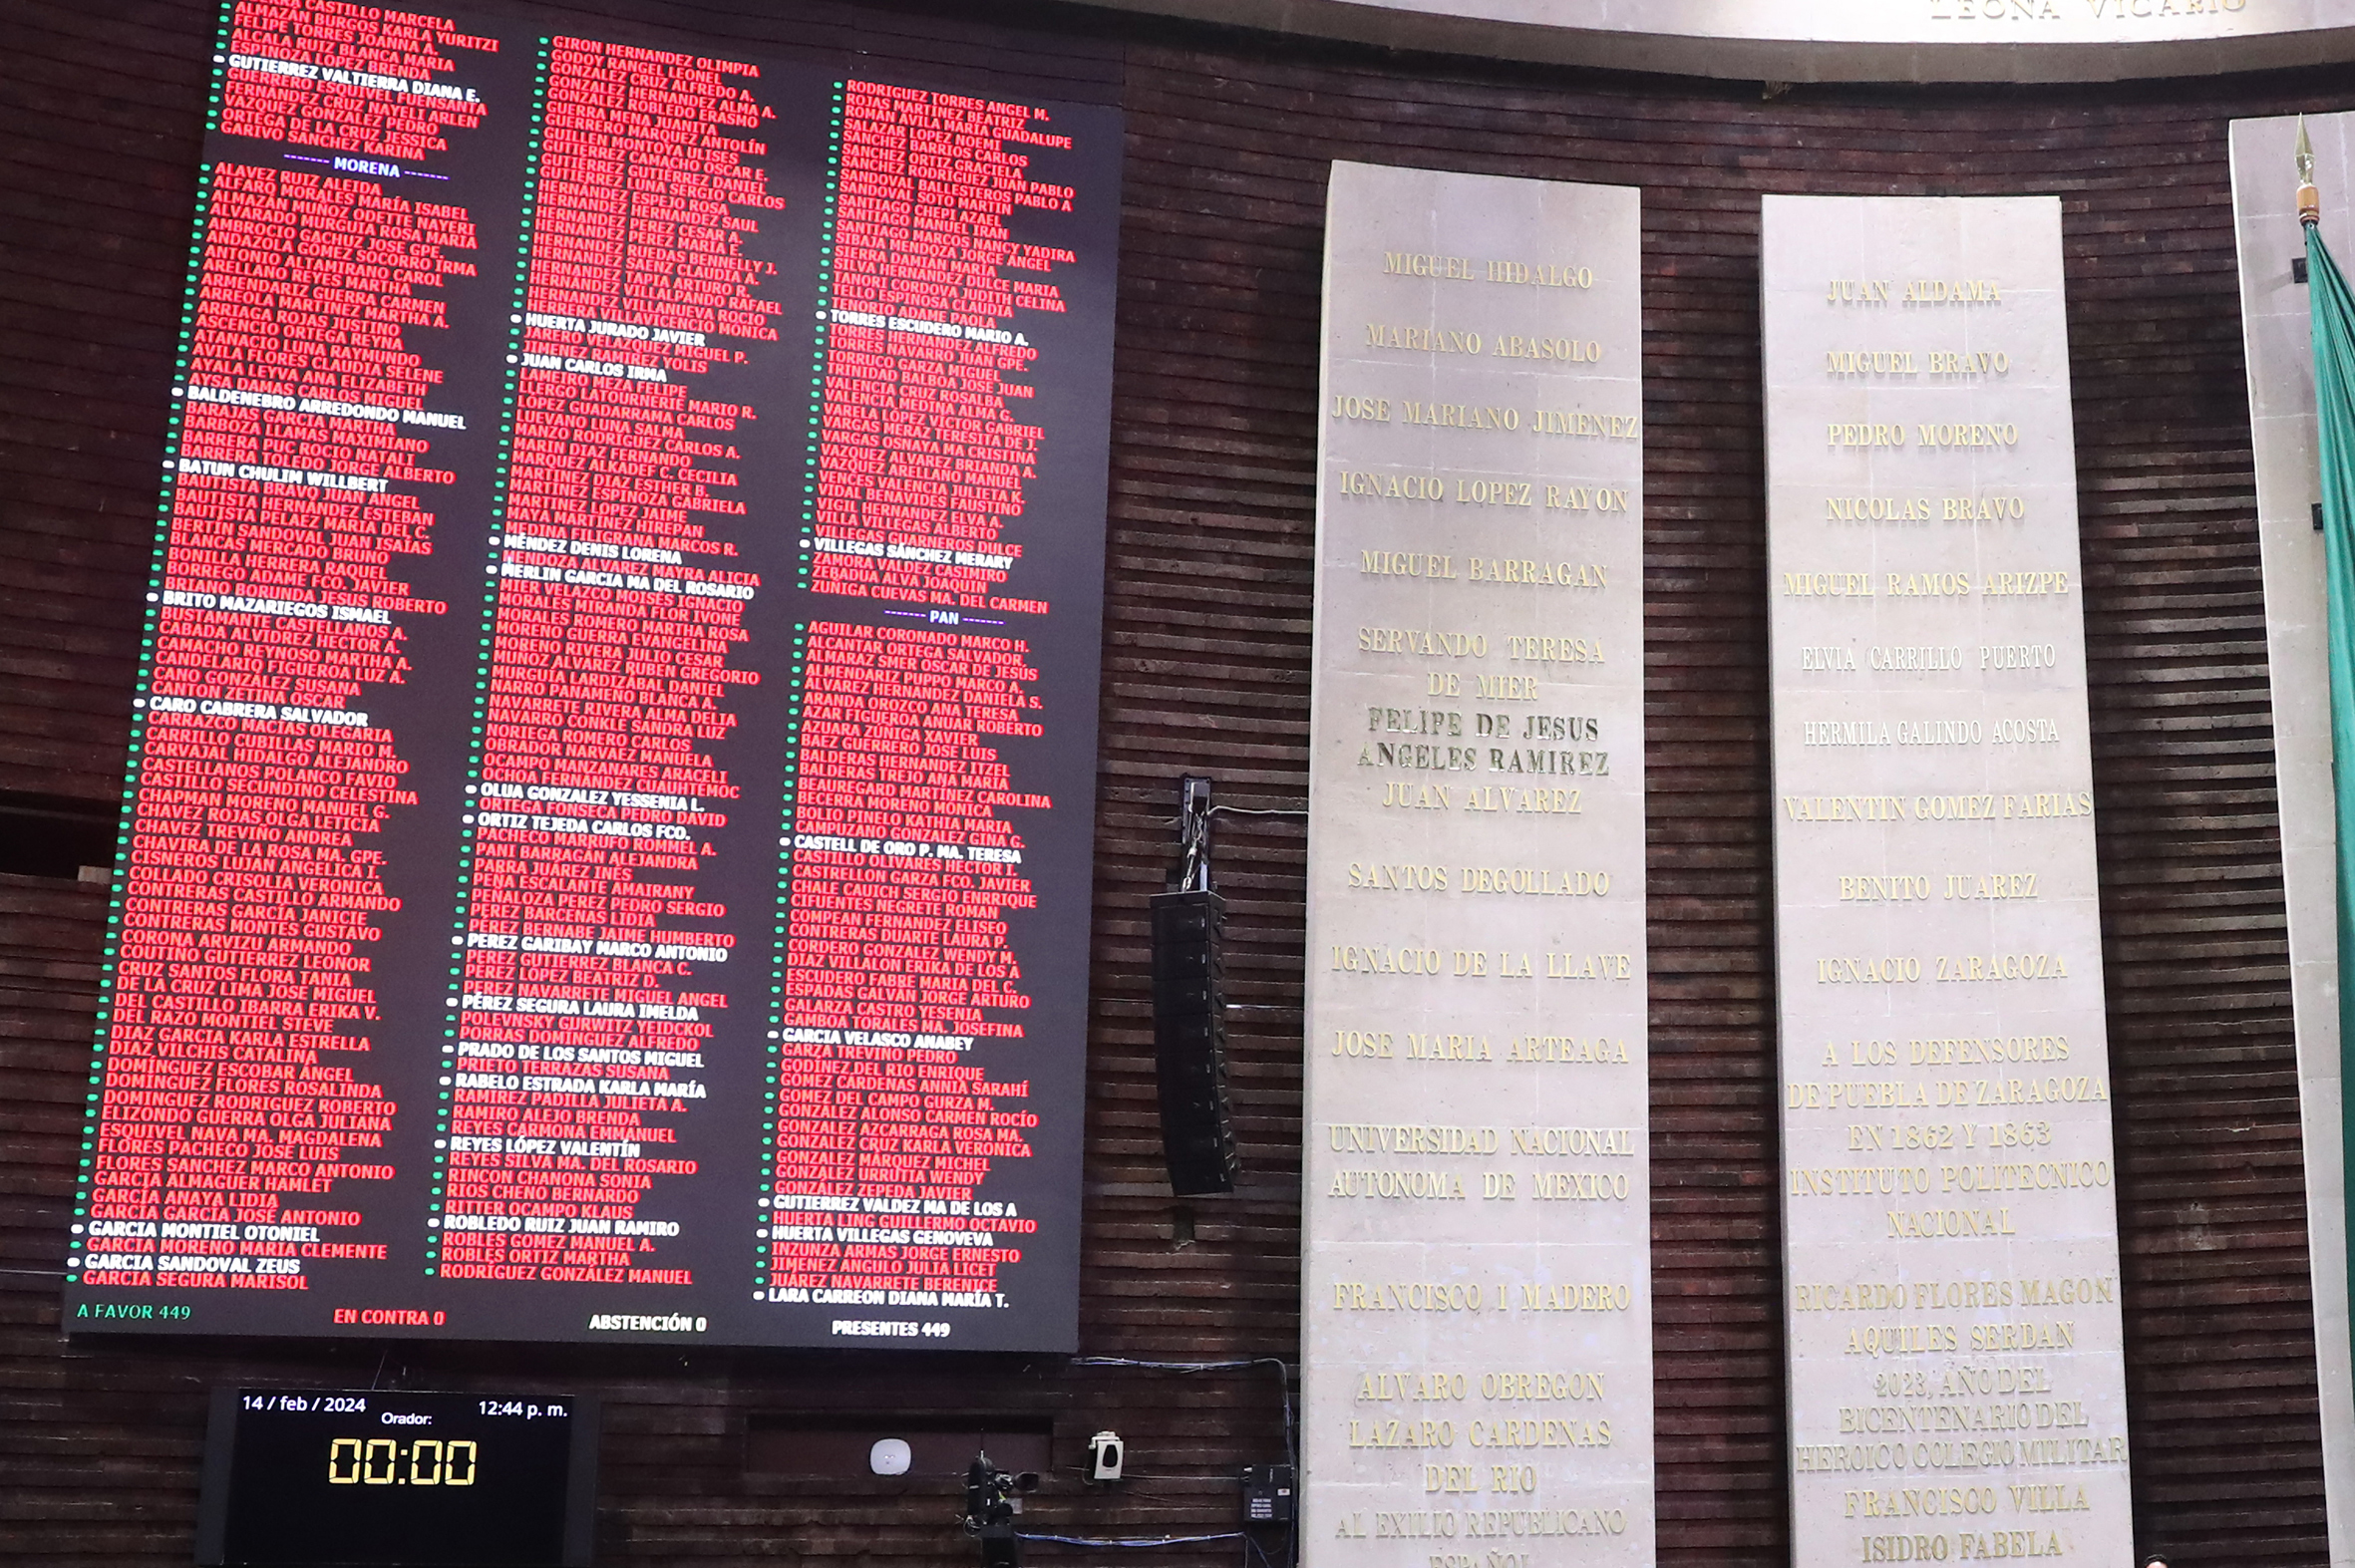 CASTILLO MARCELA
ALMAZÁN BURGOS KARLA YURITZI
FELIPE TORRES JOANNA A.
ALCALA RUIZ BLANCA MARIA
ESPINOZA LÓPEZ BRENDA
GUTIERREZ VALTIERRA DIANA E.
GUERRERO ESQUIVEL FUENSANTA
FERNÁNDEZ CRUZ NAYELI ARLEN
VAZQUEZ GONZÁLEZ PEDRO
ORTEGA DE LA CRUZ JESSICA
GARIVO SÁNCHEZ KARINA
------- MORENA -------
ALAVEZ RUIZ ALEIDA
ALFARO MORALES MARÍA ISABEL
ALMAZÁN MUÑOZ ODETTE NAYERI
ALVARADO MURGUIA ROSA MARÍA
AMBROCIO GACHUZ JOSE GPE.
ANDAZOLA GÓMEZ SOCORRO IRMA
ANTONIO ALTAMIRANO CAROL
ARELLANO REYES MARTHA
ARMENDARIZ GUERRA CARMEN
ARREOLA MARTINEZ MARTHA A.
ARRIAGA ROJAS JUSTINO
ASCENCIO ORTEGA REYNA
ATANACIO LUNA RAYMUNDO
AVILA FLORES CLAUDIA SELENE
AYALA LEYVA ANA ELIZABETH
AYSA DAMAS CARLOS MIGUEL
BALDENEBRO ARREDONDO MANUEL
BARAJAS GARCIA MARTHA
BARBOZA LLAMAS MAXIMIANO
BARRERA PUC ROCIO NATALI
BARRERA TOLEDO JORGE ALBERTO
BATUN CHULIM WILLBERT
BAUTISTA BRAVO JUAN ÁNGEL
BAUTISTA HERNÁNDEZ ESTEBAN
BAUTISTA PELAEZ MARIA DEL C.
BERTIN SANDOVAL JUAN ISAIAS
BLANCAS MERCADO BRUNO
BONILLA HERRERA RAQUEL
BORREGO ADAME FCO. JAVIER
BRIANO BORUNDA JESUS ROBERTO
BRITO MAZARIEGOS ISMAEL
BUSTAMANTE CASTELLANOS A.
CABADA ALVIDREZ HECTOR A.
CAMACHO REYNOSO MARTHA A.
CANDELARIO FIGUEROA LUZ A.
CANO GONZÁLEZ SUSANA
CANTON ZETINA OSCAR
CARO CABRERA SALVADOR
CARRAZCO MACIAS OLEGARIA
CARRILLO CUBILLAS MARIO M.
CARVAJAL HIDALGO ALEJANDRO
CASTELLANOS POLANCO FAVIO
CASTILLO SECUNDINO CELESTINA
CHAPMAN MORENO MANUEL G.
CHAVEZ ROJAS OLGA LETICIA
CHAVEZ TREVIÑO ANDREA
CHAVIRA DE LA ROSA MA. GPE.
CISNEROS LUJAN ANGÉLICA I.
COLLADO CRISOLIA VERONICA
CONTRERAS CASTILLO ARMANDO
CONTRERAS GARCÍA JANICIE
CONTRERAS MONTES GUSTAVO
CORONA ARVIZU ARMANDO
COUTIÑO GUTIERREZ LEONOR
CRUZ SANTOS FLORA TANIA
DE LA CRUZ LIMA JOSE MIGUEL
DEL CASTILLO IBARRA ERIKA V.
DEL RAZO MONTIEL STEVE
DIAZ GARCIA KARLA ESTRELLA
DIAZ VILCHIS CATALINA
DOMÍNGUEZ ESCOBAR ÁNGEL
DOMÍNGUEZ FLORES ROSALINDA
DOMINGUEZ RODRIGUEZ ROBERTO
ELIZONDO GUERRA OLGA JULIANA
ESQUIVEL NAVA MA. MAGDALENA
FLORES PACHECO JOSÉ LUIS
FLORES SANCHEZ MARCO ANTONIO
GARCÍA ALMAGUER HAMLET
GARCÍA ANAYA LIDIA
GARCÍA GARCÍA JOSÉ ANTONIO
GARCIA MONTIEL OTONIEL
GARCIA MORENO MARIA CLEMENTE
GARCIA SANDOVAL ZEUS
GARCIA SEGURA MARISOL
GIRON HERNANDEZ OLIMPIA
GODOY RANGEL LEONEL
GONZALEZ CRUZ ALFREDO A.
GONZALEZ HERNANDEZ ALMA A.
GONZALEZ ROBLEDO ERASMO
GUERRA MENA JUANITA
GUERRERO MARQUEZ ANTOLÍN
GUILLEN MONTOYA ULISES
GUTIERREZ CAMACHO OSCAR E.
GUTIÉRREZ GUTIÉRREZ DANIEL
GUTIERREZ LUNA SERGIO CARLOS
HERNANDEZ ESPEJO ROSA
HERNÁNDEZ HERNANDEZ SAUL
HERNANDEZ PEREZ CESAR A.
HERNANDEZ PEREZ MARIA E.
HERNANDEZ RUEDAS BENNELLY J.
HERNANDEZ SAENZ CLAUDIA A.
HERNANDEZ TAPIA ARTURO R.
HERNANDEZ VILLALPANDO RAFAEL
HERNANDEZ VILLANUEVA ROCIO
HERRERA VILLAVICENCIO MÓNICA
HUERTA JURADO JAVIER
JARERO VELAZQUEZ MIGUEL P.
JIMENEZ RAMIREZ YOLIS
JUAN CARLOS IRMA
LAMEIRO MEZA FELIPE
LLERGO LATOURNERIE MARIO R.
LOPEZ GUADARRAMA CARLOS
LUEVANO LUNA SALMA
MANZO RODRIGUEZ CARLOS A.
MARIN DIAZ FERNANDO
MARQUEZ ALKADEF C. CECILIA
MARTINEZ DIAZ ESTHER B.
MARTÍNEZ ESPINOZA GABRIELA
MARTÍNEZ LOPEZ JAIME
MAYA MARTINEZ HIREPAN
MEDINA FILIGRANA MARCOS R.
MÉNDEZ DENIS LORENA
MENDOZA ALVAREZ MAYRA ALICIA
MERLIN GARCIA MA DEL ROSARIO
MIER VELAZCO MOISES IGNACIO
MORALES MIRANDA FLOR IVONE
MORALES ROMERO MARTHA ROSA
MORENO GUERRA EVANGELINA
MORENO RIVERA JULIO CESAR
MUÑOZ ALVAREZ RUBEN GREGORIO
MURGUIA LARDIZÁBAL DANIEL
NARRO PANAMEÑO BLANCA A.
NAVARRETE RIVERA ALMA DELIA
NAVARRO CONKLE SANDRA LUZ
NORIEGA ROMERO CARLOS
OBRADOR NARVAEZ MANUELA
OCAMPO MANZANARES ARACELI
OCHOA FERNANDEZ CUAUHTEMOC
OLUA GONZALEZ YESSENIA L.
ORTEGA FONSECA PEDRO DAVID
ORTIZ TEJEDA CARLOS FCO.
PACHECO MARRUFO ROMMEL A.
PANI BARRAGÁN ALEJANDRA
PARRA JUAREZ INES
PEÑA ESCALANTE AMAIRANY
PEÑALOZA PEREZ PEDRO SERGIO
PEREZ BARCENAS LIDIA
PEREZ BERNABE JAIME HUMBERTO
PEREZ GARIBAY MARCO ANTONIO
PEREZ GUTIERREZ BLANCA C.
PEREZ LÓPEZ BEATRIZ D.
PEREZ NAVARRETE MIGUEL ANGEL
PÉREZ SEGURA LAURA IMELDA
POLEVNSKY GURWITZ YEIDCKOL
PORRAS DOMINGUEZ ALFREDO
PRADO DE LOS SANTOS MIGUEL
PRIETO TERRAZAS SUSANA
RABELO ESTRADA KARLA MARÍA
RAMIREZ PADILLA JULIETA A.
RAMIRO ALEJO BRENDA
REYES CARMONA EMMANUEL
REYES LÓPEZ VALENTÍN
REYES SILVA MA. DEL ROSARIO
RINCON CHANONA SONIA
RIOS CHENO BERNARDO
RITTER OCAMPO KLAUS
ROBLEDO RUIZ JUAN RAMIRO
ROBLES GOMEZ MANUEL A.
ROBLES ORTIZ MARTHA
RODRÍGUEZ GONZÁLEZ MANUEL
RODRIGUEZ TORRES ANGEL M.
ROJAS MARTINEZ BEATRIZ
ROMAN AVILA MARIA GUADALUPE
SALAZAR LOPEZ NOEMI
SANCHEZ BARRIOS CARLOS
SANCHEZ ORTIZ GRACIELA
SANCHEZ RODRIGUEZ JUAN PABLO
SANDOVAL BALLESTEROS PABLO A
SANDOVAL SOTO MARTIN
SANTIAGO CHEPI AZAEL
SANTIAGO MANUEL IRAN
SANTIAGO MARCOS NANCY YADIRA
SIBAJA MENDOZA JORGE ÁNGEL
SIERRA DAMIÁN MARÍA
SILVA HERNANDEZ DULCE MARIA
TANORI CORDOVA JUDITH CELINA
TELLO ESPINOSA CLAUDIA
TENORIO ADAME PAOLA
TORRES ESCUDERO MARIO A.
TORRES HERNANDEZ ALFREDO
TORRES NAVARRO JUAN GPE.
TORRUCO GARZA MIGUEL
TRINIDAD BALBOA JOSE JUAN
VALENCIA CRUZ ROSALBA
VALENCIA MEDINA ALMA G.
VARELA LÓPEZ VÍCTOR GABRIEL
VARGAS MERAZ TERESITA DE J.
VARGAS OSNAYA MA CRISTINA
VAZQUEZ ALVAREZ BRIANDA A.
VAZQUEZ ARELLANO MANUEL
VENCES VALENCIA JULIETA K.
VIDAL BENAVIDES FAUSTINO
VIGIL HERNANDEZ ELVA A.
VILLA VILLEGAS ALBERTO
VILLEGAS GUARNEROS DULCE
VILLEGAS SÁNCHEZ MERARY
ZAMORA VALDEZ CASIMIRO
ZEBADUA ALVA JOAQUIN
ZUÑIGA CUEVAS MA. DEL CARMEN
------- PAN -------
AGUILAR CORONADO MARCO H.
ALCANTAR ORTEGA SALVADOR
ALMARAZ SMER OSCAR DE JESÚS
ALMENDARIZ PUPPO MARCO A.
ÁLVAREZ HERNANDEZ DANIELA S.
ARANDA OROZCO ANA TERESA
AZAR FIGUEROA ANUAR ROBERTO
AZUARA ZUÑIGA XAVIER
BAEZ GUERRERO JOSE LUIS
BALDERAS HERNANDEZ ITZEL
BALDERAS TREJO ANA MARIA
BEAUREGARD MARTÍNEZ CAROLINA
BECERRA MORENO MÓNICA
BOLIO PINELO KATHIA MARIA
CAMPUZANO GONZALEZ GINA G.
CASTELL DE ORO P. MA. TERESA
CASTILLO OLIVARES HECTOR I.
CASTRELLON GARZA FCO. JAVIER
CHALE CAUICH SERGIO ENRRIQUE
CIFUENTES NEGRETE ROMAN
COMPEAN FERNÁNDEZ ELISEO
CONTRERAS DUARTE LAURA P.
CORDERO GONZALEZ WENDY M.
DIAZ VILLALÓN ERIKA DE LOS A
ESCUDERO FABRE MARIA DEL C.
ESPADAS GALVÁN JORGE ARTURO
GALARZA CASTRO YESENIA
GAMBOA TORALES MA. JOSEFINA
GARCIA VELASCO ANABEY
GARZA TREVIÑO PEDRO
GODINEZ DEL RIO ENRIQUE
GOMEZ CARDENAS ANNIA SARAHÍ
GOMEZ DEL CAMPO GURZA M.
GONZÁLEZ ALONSO CARMEN ROCÍO
GONZÁLEZ AZCARRAGA ROSA MA.
GONZÁLEZ CRUZ KARLA VERONICA
GONZÁLEZ MÁRQUEZ MICHEL
GONZÁLEZ URRUTIA WENDY
GONZÁLEZ ZEPEDA JAVIER
GUTIERREZ VALDEZ MA DE LOS A
HUERTA LING GUILLERMO OCTAVIO
HUERTA VILLEGAS GENOVEVA
INZUNZA ARMAS JORGE ERNESTO
JIMENEZ ANGULO JULIA LICET
JUÁREZ NAVARRETE BERENICE
LARA CARREON DIANA MARÍA T.
A FAVOR 449
EN CONTRA 0
ABSTENCIÓN 0
PRESENTES 449
14 / feb / 2024
12:44 p. m.
Orador:
00:00
LEONA VICARIO
MIGUEL HIDALGO
MARIANO ABASOLO
JOSE MARIANO JIMENEZ
IGNACIO LOPEZ RAYON
MIGUEL BARRAGAN
SERVANDO TERESA
DE MIER
FELIPE DE JESUS
ANGELES RAMIREZ
JUAN ALVAREZ
SANTOS DEGOLLADO
IGNACIO DE LA LLAVE
JOSE MARIA ARTEAGA
UNIVERSIDAD NACIONAL
AUTONOMA DE MEXICO
FRANCISCO I MADERO
ALVARO OBREGON
LAZARO CARDENAS
DEL RIO
AL EXILIO REPUBLICANO
ESPAÑOL
JUAN ALDAMA
MIGUEL BRAVO
PEDRO MORENO
NICOLAS BRAVO
MIGUEL RAMOS ARIZPE
ELVIA CARRILLO PUERTO
HERMILA GALINDO ACOSTA
VALENTIN GOMEZ FARIAS
BENITO JUAREZ
IGNACIO ZARAGOZA
A LOS DEFENSORES
DE PUEBLA DE ZARAGOZA
EN 1862 Y 1863
INSTITUTO POLITECNICO
NACIONAL
RICARDO FLORES MAGON
AQUILES SERDAN
2023, AÑO DEL
BICENTENARIO DEL
HEROICO COLEGIO MILITAR
FRANCISCO VILLA
ISIDRO FABELA